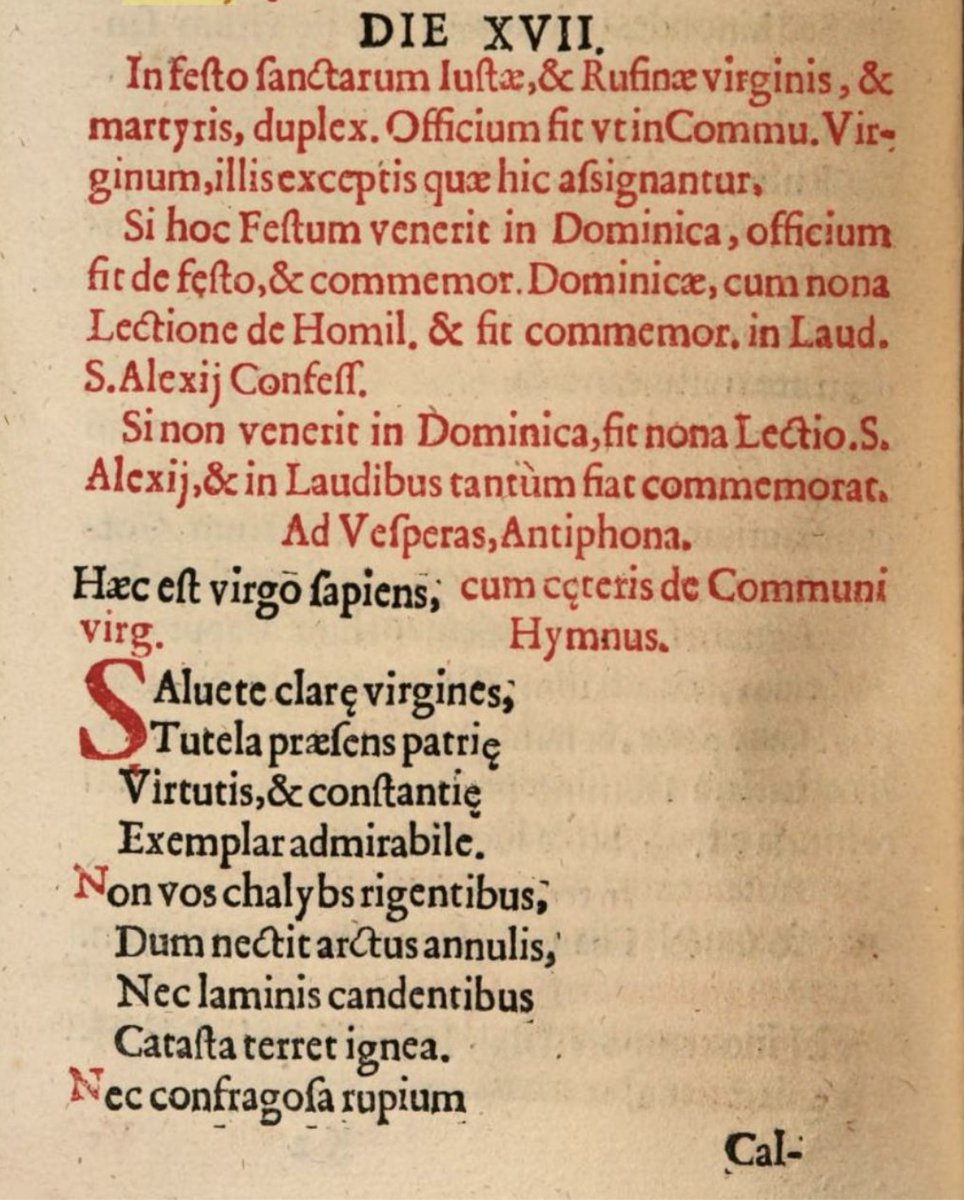 DIE XVII.
In festo sanctarum Iustæ,& Rufinæ virginis, &
martyris, duplex. Officium fit vt in Commu. Vir-
ginum, illis exceptis quæ hic assignantur.
Si hoc Festum venerit in Dominica, officium
fit de fęsto,& commemor. Dominicæ, cum nona
Lectione de Homil. & fit commemor. in Laud.
S. Alexij Confess.
Si non venerit in Dominica, fit nona Lectio. S.
Alexij,& in Laudibus tantùm fiat commemorat.
Ad Vesperas, Antiphona.
Hæc est virgo sapiens; cum cęteris de Communi
virg. Hymnus.
SAluete clarę virgines;
Tutela præsens patrię
Virtutis,& constantię
Exemplar admirabile.
Non vos chalybs rigentibus;
Dum nectit arctus annulis,
Nec laminis candentibus
Catasta terret ignea.
Nec confragosa rupium
Cal-